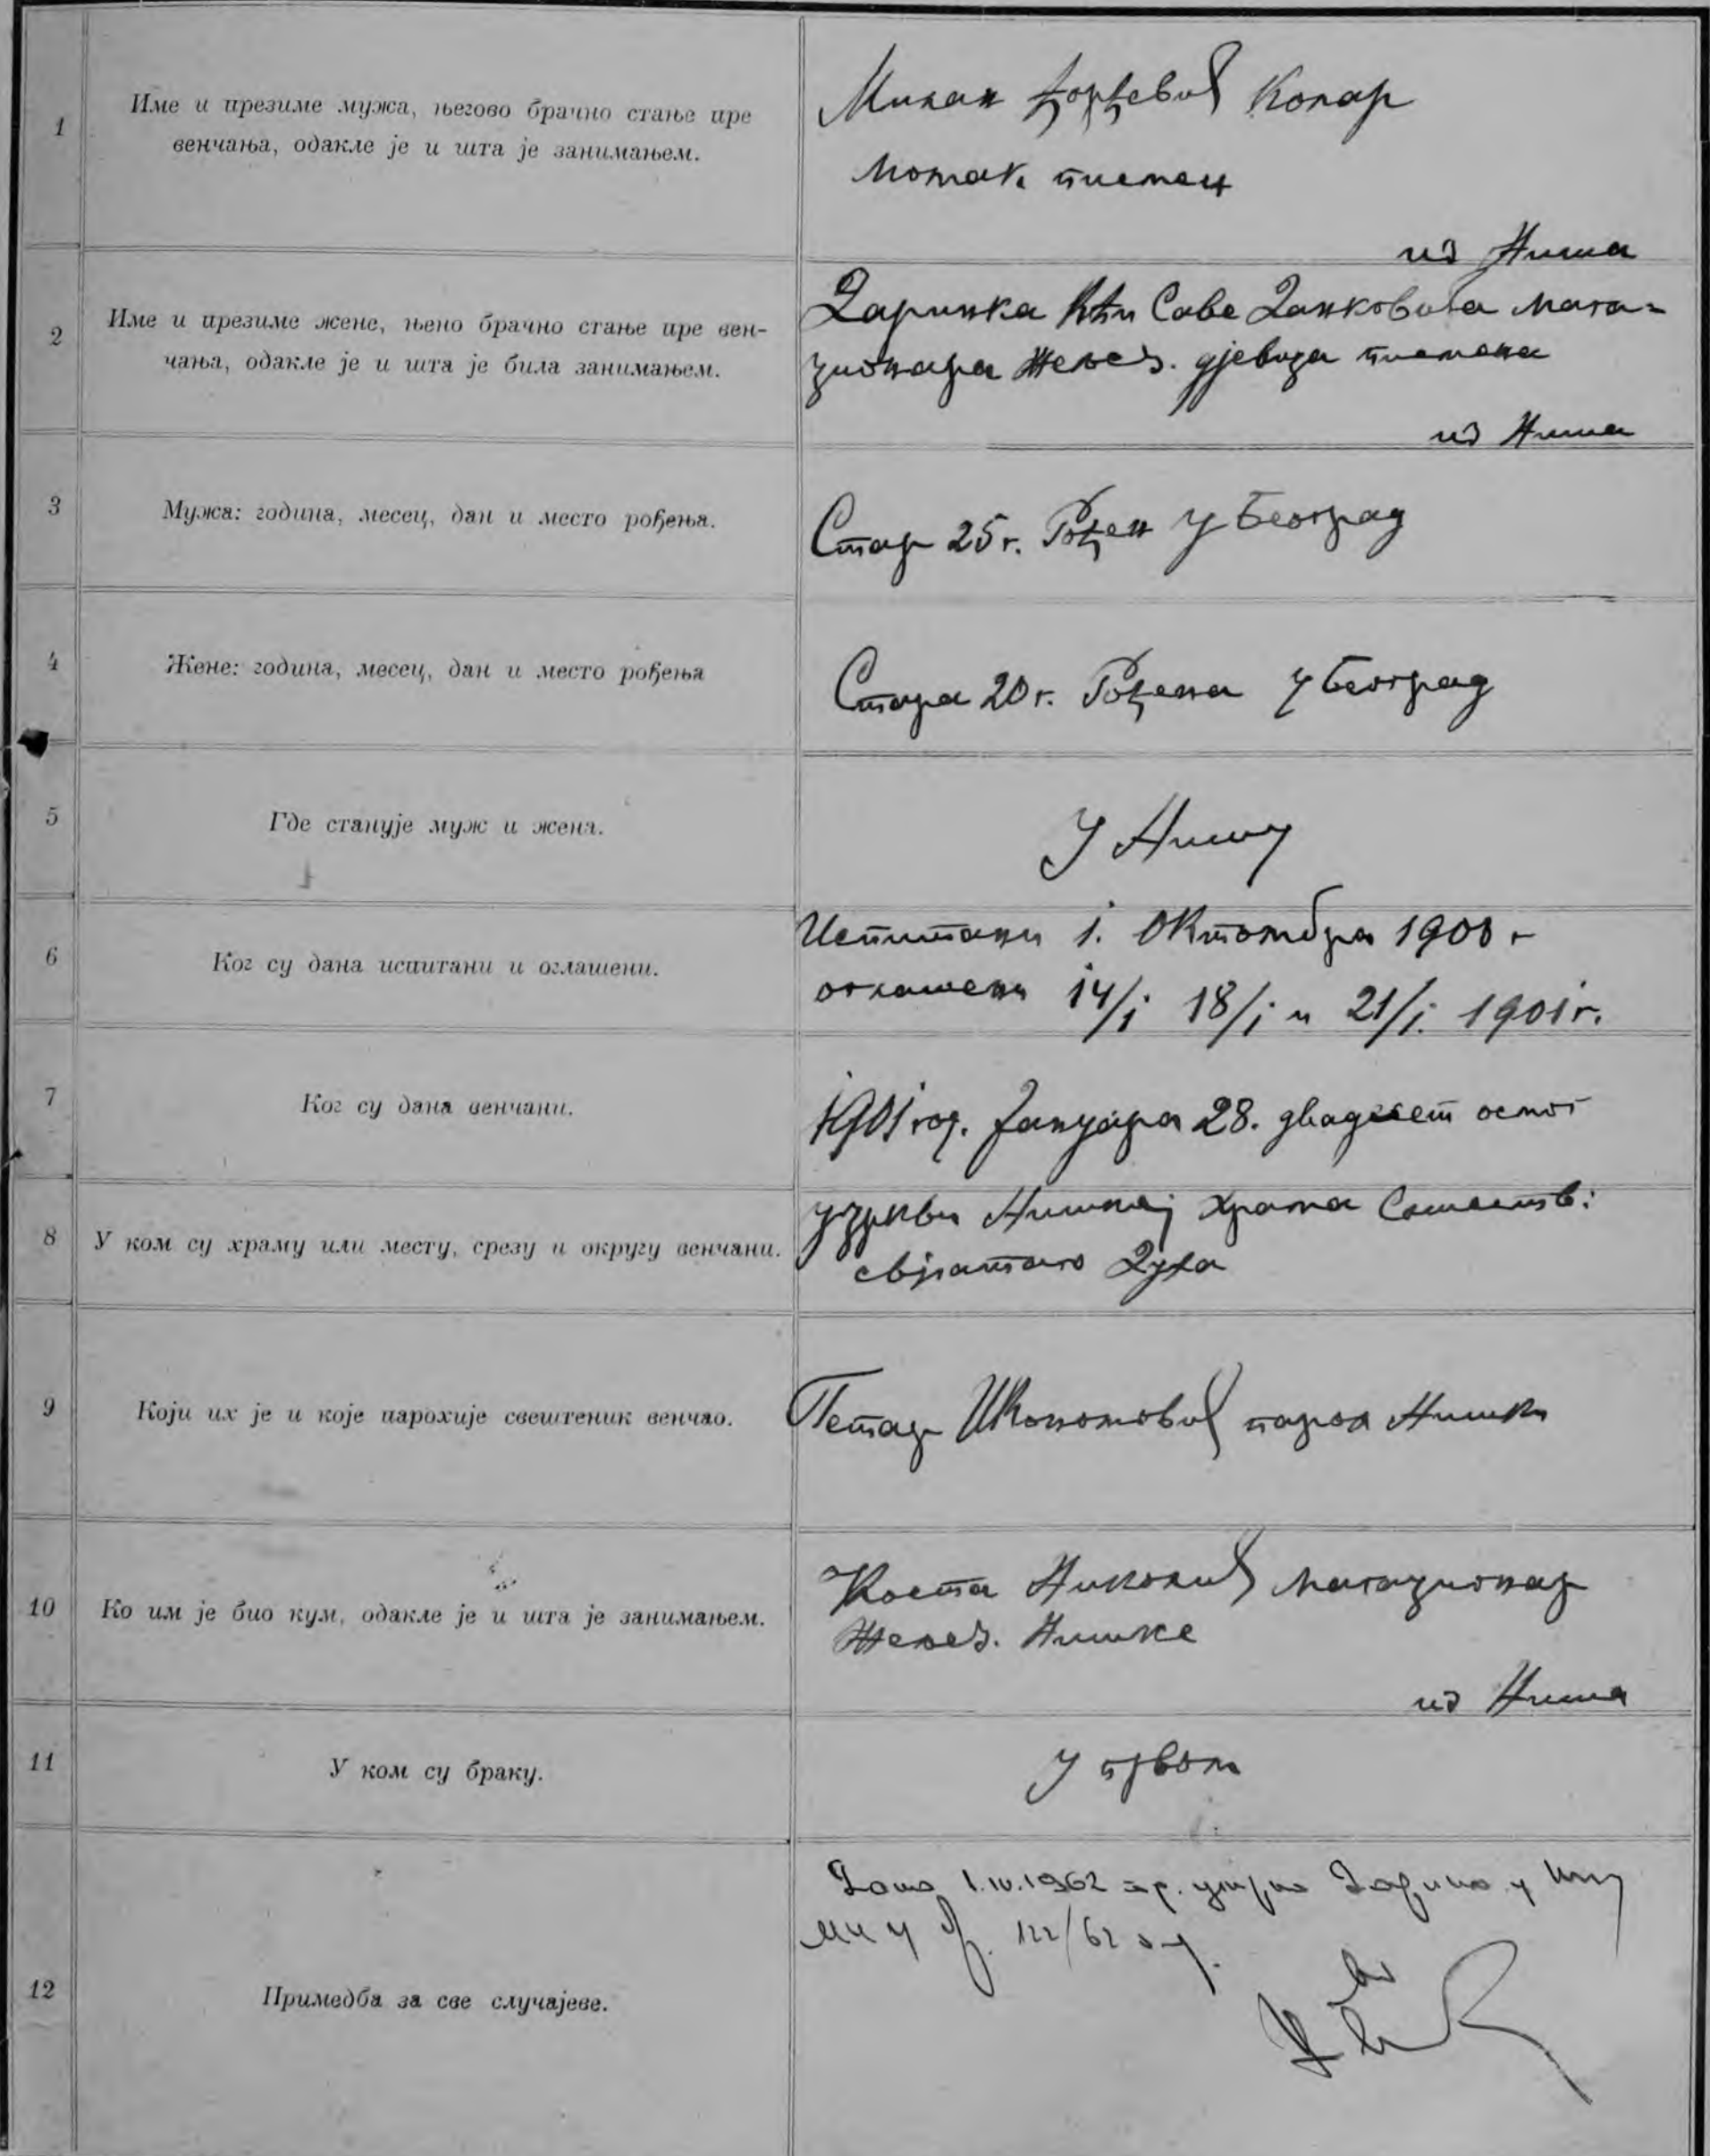 1
Име и презиме мужа, његово брачно стање пре
венчања, одакле је и шта је занимањем.
Милан Ђорђевић Колар
момак писмен
из Ниша
2
Име и презиме жене, њено брачно стање пре вен-
чања, одакле је и шта је била занимањем.
Даринка кћи Саве Данковића мага=
ционара Жељез. дјевица писмена
из Ниша
3
Мужа: година, месец, дан и место рођења.
Стар 25 г. Рођен у Београд
4
Жене: година, месец, дан и место рођења
Стара 20 г. Рођена у Београд
5
Где станује муж и жена.
У Нишу
6
Ког су дана испитани и оглашени.
Испитани 1. Октомбра 1900 г
оглашени 14/1 18/1 и 21/1. 1901 г.
7
Ког су дана венчани.
1901 год. Јануара 28. двадесет осмог
8
У ком су храму или месту, срезу и округу венчани.
у цркви Нишкој храма Сошеств:
свјатаго Духа
9
Који их је и које парохије свештеник венчао.
Петар Икономовић парох Нишки
10
Ко им је био кум, одакле је и шта је занимањем.
Коста Николић магационар
Жељез. Нишке
из Ниша
11
У ком су браку.
У првом
12
Примедба за све случајеве.
Дана 1.IV.1962 умрла у
122/62